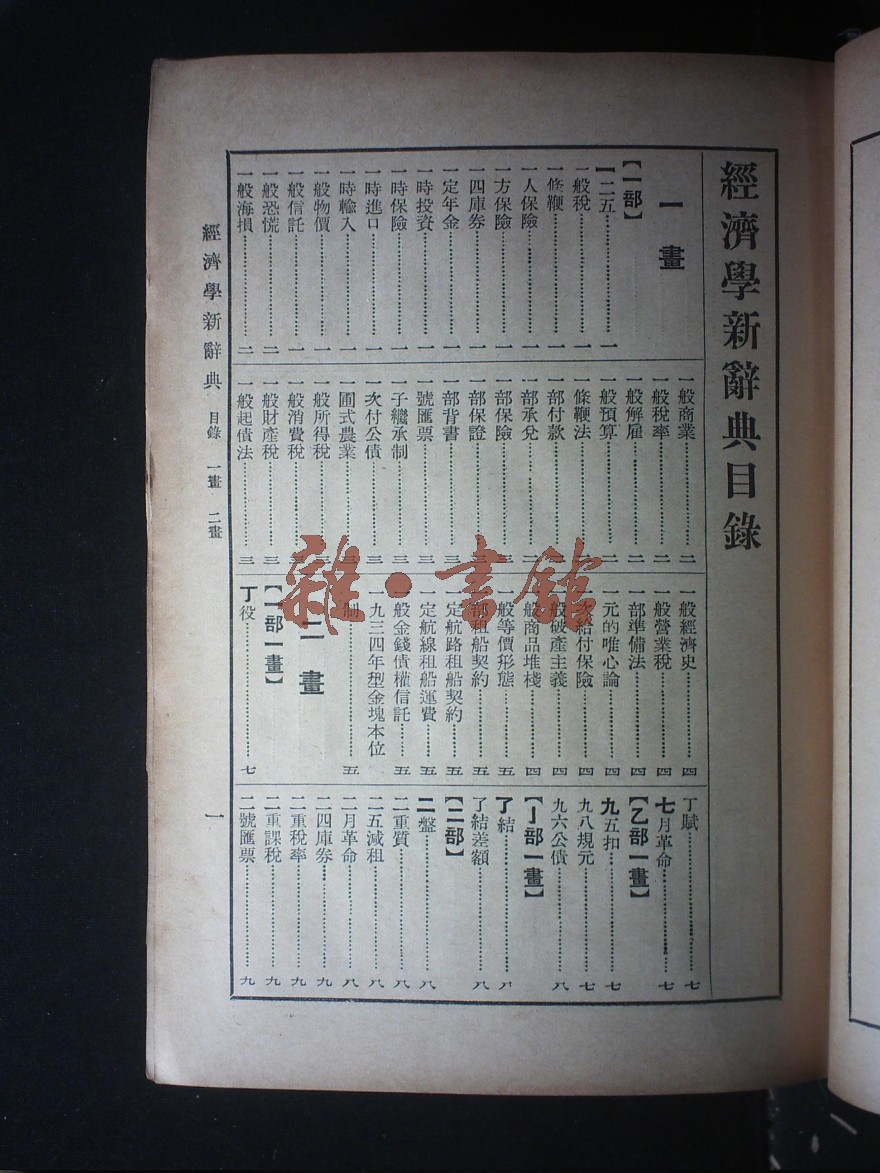 經濟學新辭典目錄
一畫
【一部】
一二五……一
一般稅……一
一條鞭……一
一人保險……一
一方保險……一
一四庫券……一
一定年金……一
一時投資……一
一時保險……一
一時進口……一
一時輸入……一
一般物價……一
一般信託……一
一般恐慌……二
一般海損……二
一般商業……二
一般稅率……二
一般解雇……二
一般預算……二
一條鞭法
一部付款
一部承兌
一部保險
一部保證……三
一部背書……三
一號匯票……三
一子繼承制……三
一次付公債……三
一圃式農業
一般所得稅
一般消費稅
一般財產稅……三
一般起債法……三
一般經濟史……四
一般營業稅……四
一部準備法……四
一元的唯心論……四
一次給付保險……四
一般破產主義……四
一般商品堆棧……四
一般等價形態……五
一部租船契約……五
一定航路租船契約……五
一定航線租船運費……五
一般金錢債權信託……五
一九三四年型金塊本位
制……五
二畫
【一部一畫】
丁役……七
丁賦……七
七月革命……七
【乙部一畫】
九五扣……七
九八規元……七
九六公債……八
【亅部一畫】
了結……八
了結差額……八
【二部】
二盤……八
二重質……八
二五減租……八
二月革命……八
二四庫券……九
二重稅率……九
二重課稅……九
二號匯票……九
經濟學新辭典 目錄 一畫 二畫
一
雜·書館